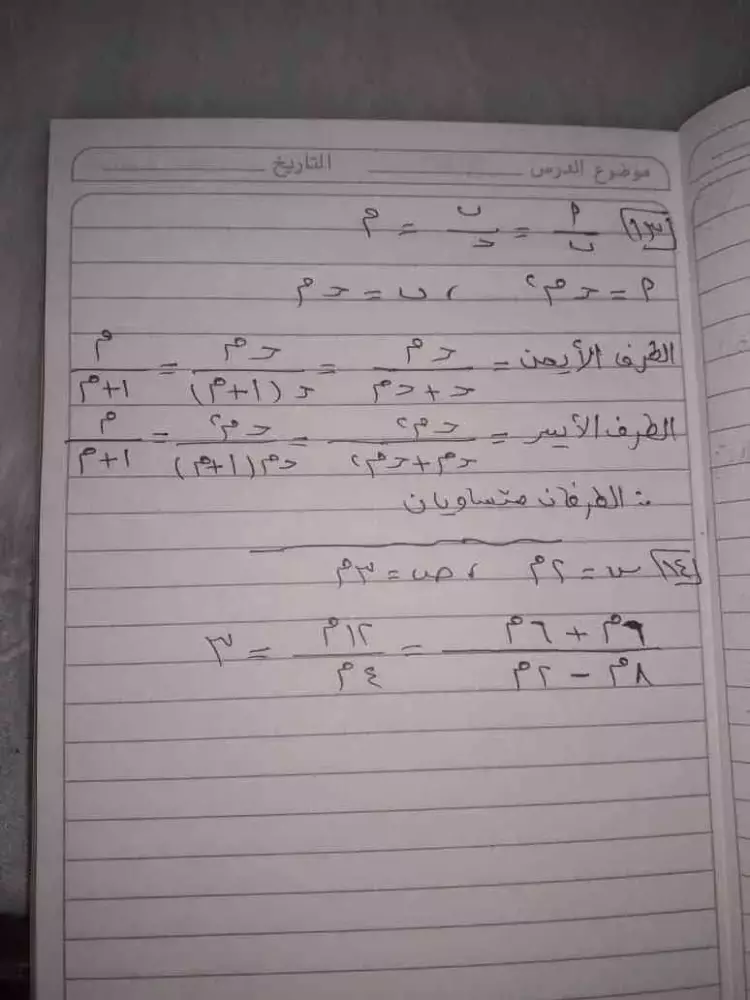 موضوع الدرس ............ التاريخ ............
[١٣] أ/ب = ب/ح = م
أ = ح م٢ ، ب = ح م
الطرف الأيمن = ح م / (ح + ح م) = ح م / ح (١ + م) = م / (١ + م)
الطرف الأيسر = ح م٢ / (ح م + ح م٢) = ح م٢ / ح م (١ + م) = م / (١ + م)
∴ الطرفان متساويان
[١٤] س = ٢م ، ص = ٣م
(٦م + ٦م) / (٨م − ٢م) = ١٢م / ٤م = ٣